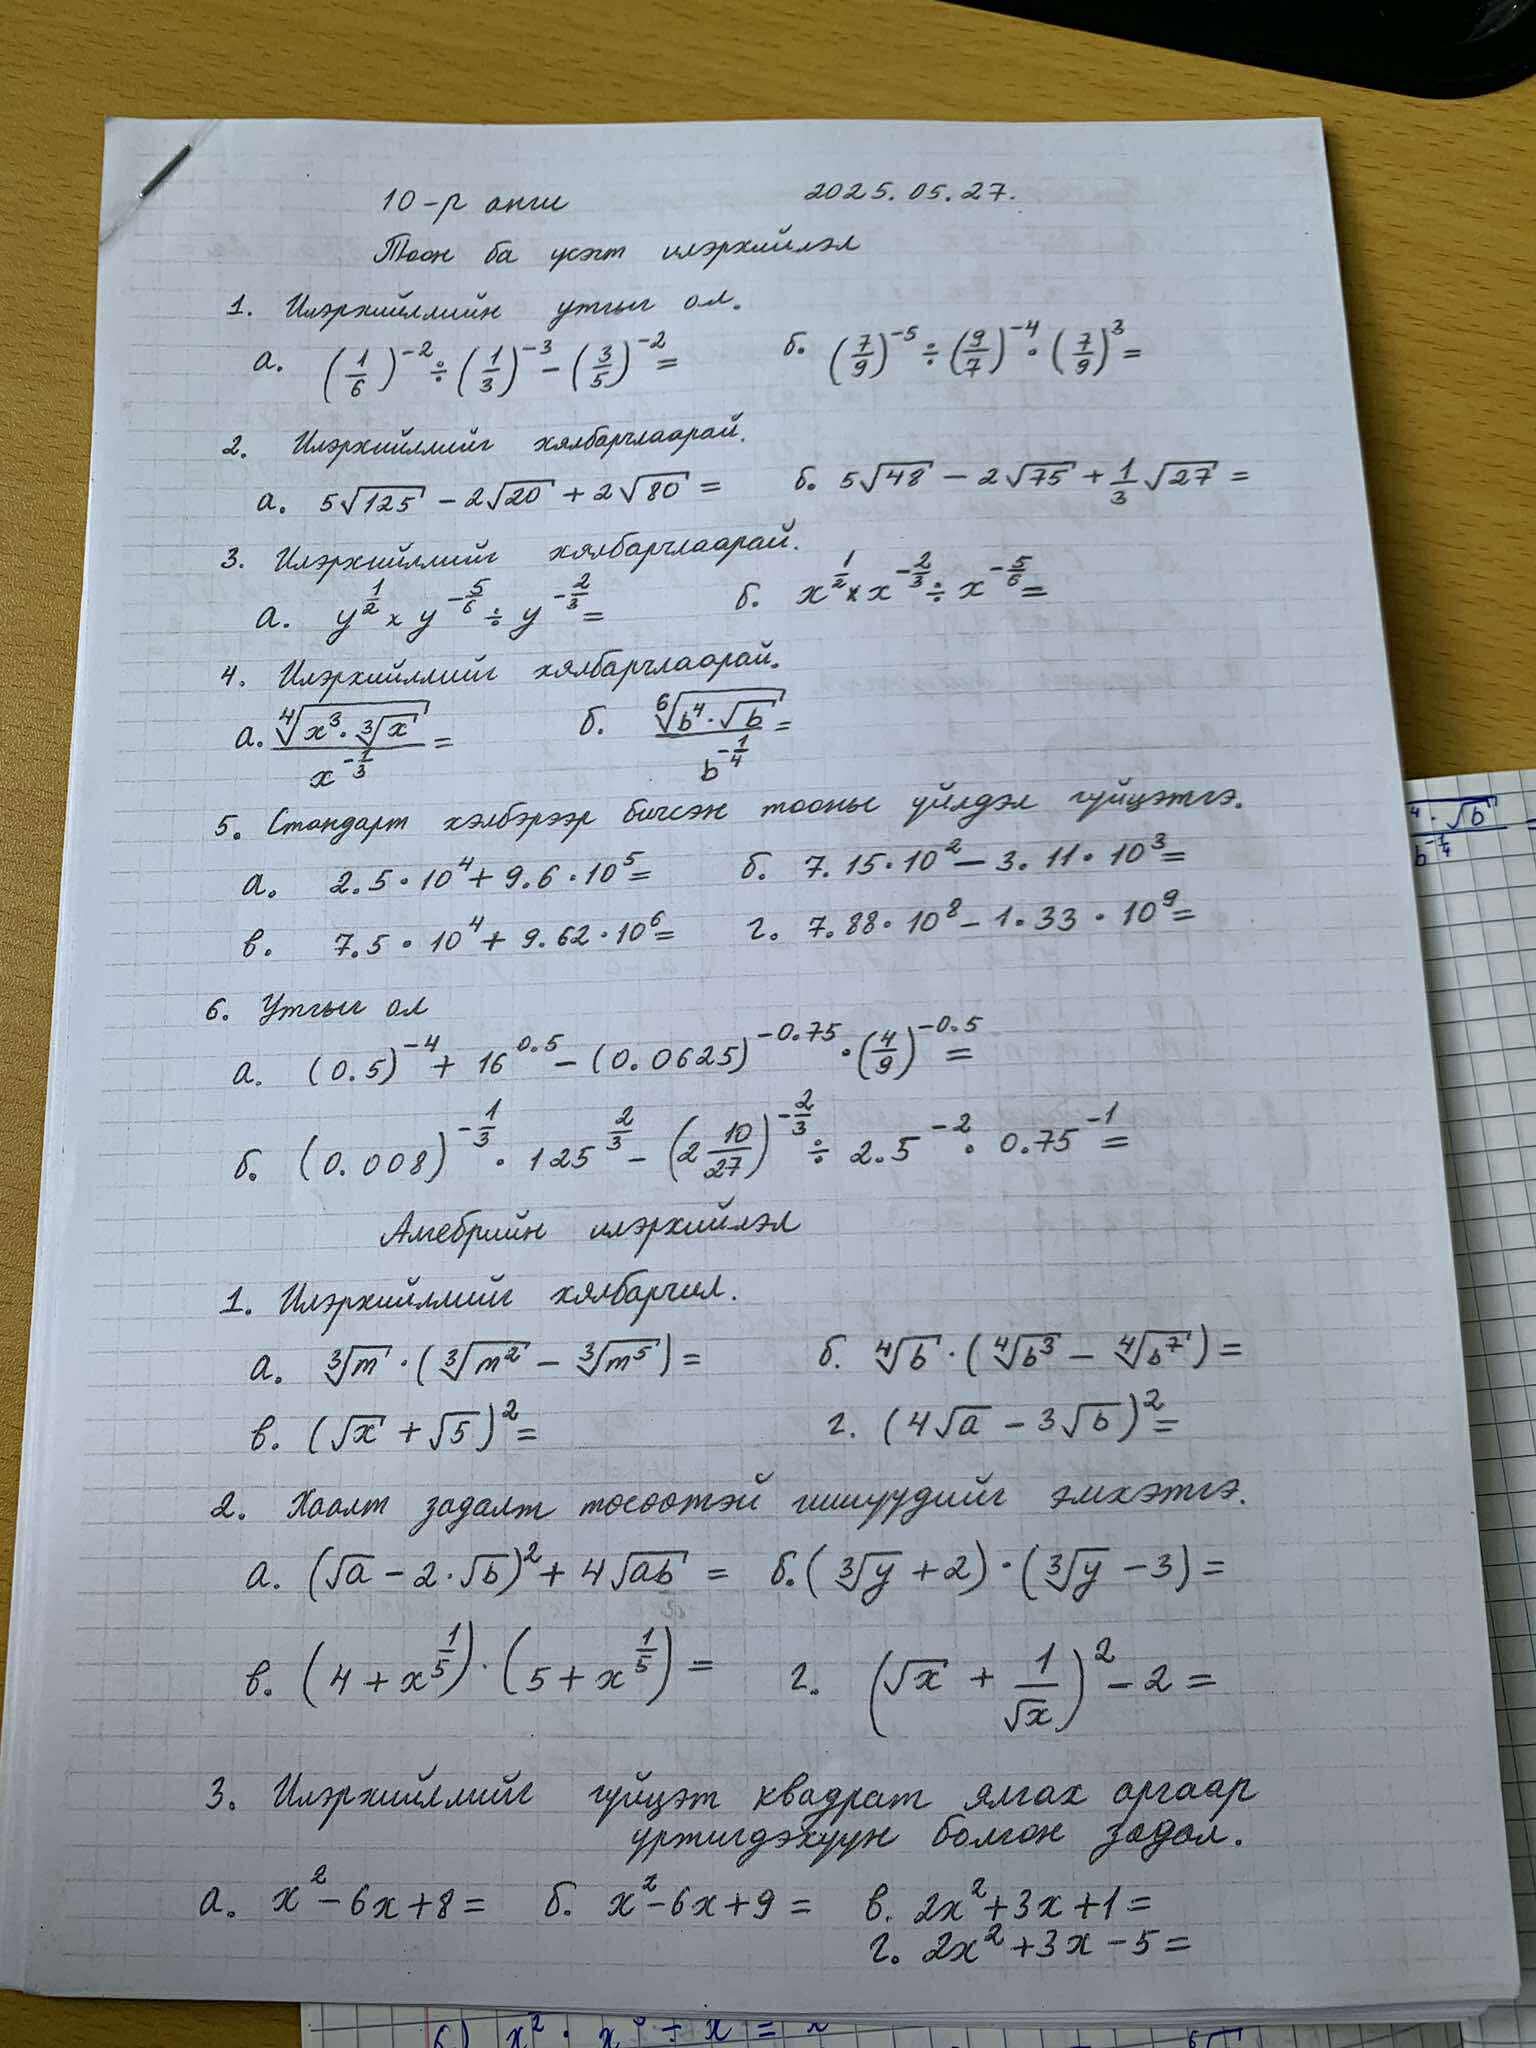 10-р анги 2025.05.27.
Тоон ба үсэгт илэрхийлэл
1. Илэрхийллийн утгыг ол.
а. (1/6)^-2 ÷ (1/3)^-3 - (3/5)^-2 = б. (7/9)^-5 ÷ (9/7)^-4 · (7/9)^3 =
2. Илэрхийллийг хялбарчлаарай.
а. 5√125 - 2√20 + 2√80 = б. 5√48 - 2√75 + 1/3 √27 =
3. Илэрхийллийг хялбарчлаарай.
а. y^(1/2) × y^(-5/6) ÷ y^(-2/3) = б. x^(1/2) × x^(-2/3) ÷ x^(-5/6) =
4. Илэрхийллийг хялбарчлаарай.
а. ∜(x³·∛x) / x^(-1/3) = б. ⁶√(b⁴·√b) / b^(-1/4) =
5. Стандарт хэлбэрээр бичсэн тооны үйлдэл гүйцэтгэ.
а. 2.5·10⁴ + 9.6·10⁵ = б. 7.15·10² - 3.11·10³ =
в. 7.5·10⁴ + 9.62·10⁶ = г. 7.88·10⁸ - 1.33·10⁹ =
6. Утгыг ол
а. (0.5)^-4 + 16^0.5 - (0.0625)^-0.75 · (4/9)^-0.5 =
б. (0.008)^(-1/3) · 125^(2/3) - (2 10/27)^(-2/3) ÷ 2.5^-2 · 0.75^-1 =
Алгебрийн илэрхийлэл
1. Илэрхийллийг хялбарчил.
а. ∛m · (∛m² - ∛m⁵) = б. ∜b · (∜b³ - ∜b⁷) =
в. (√x + √5)² = г. (4√a - 3√b)² =
2. Хаалт задалж төсөөтэй гишүүдийг эмхэтгэ.
а. (√a - 2·√b)² + 4√ab = б. (∛y + 2) · (∛y - 3) =
в. (4 + x^(1/5)) · (5 + x^(1/5)) = г. (√x + 1/√x)² - 2 =
3. Илэрхийллийг гүйцэт квадрат ялгах аргаар
үржигдэхүүн болгон задал.
а. x² - 6x + 8 = б. x² - 6x + 9 = в. 2x² + 3x + 1 =
г. 2x² + 3x - 5 =